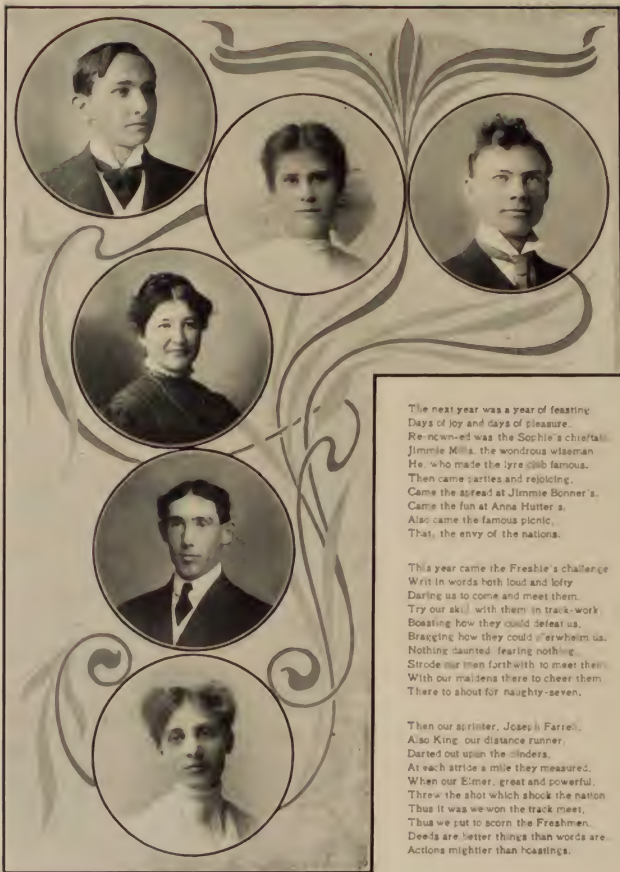 The next year was a year of feasting
Days of joy and days of pleasure.
Re-nown-ed was the Sophie's chieftain
Jimmie Mills, the wondrous wiseman
He, who made the lyre club famous.
Then came parties and rejoicing,
Came the spread at Jimmie Bonner's,
Came the fun at Anna Hutter's,
Also came the famous picnic,
That, the envy of the nations.
This year came the Freshie's challenge
Writ in words both loud and lofty
Daring us to come and meet them.
Try our skill with them in track-work
Boasting how they could defeat us,
Bragging how they could o'erwhelm us.
Nothing daunted, fearing nothing
Strode our men forthwith to meet them
With our maidens there to cheer them
There to shout for naughty-seven.
Then our sprinter, Joseph Farrell,
Also King our distance runner,
Darted out upon the cinders,
At each stride a mile they measured,
When our Elmer, great and powerful,
Threw the shot which shook the nation
Thus it was we won the track meet,
Thus we put to scorn the Freshmen.
Deeds are better things than words are
Actions mightier than boastings.